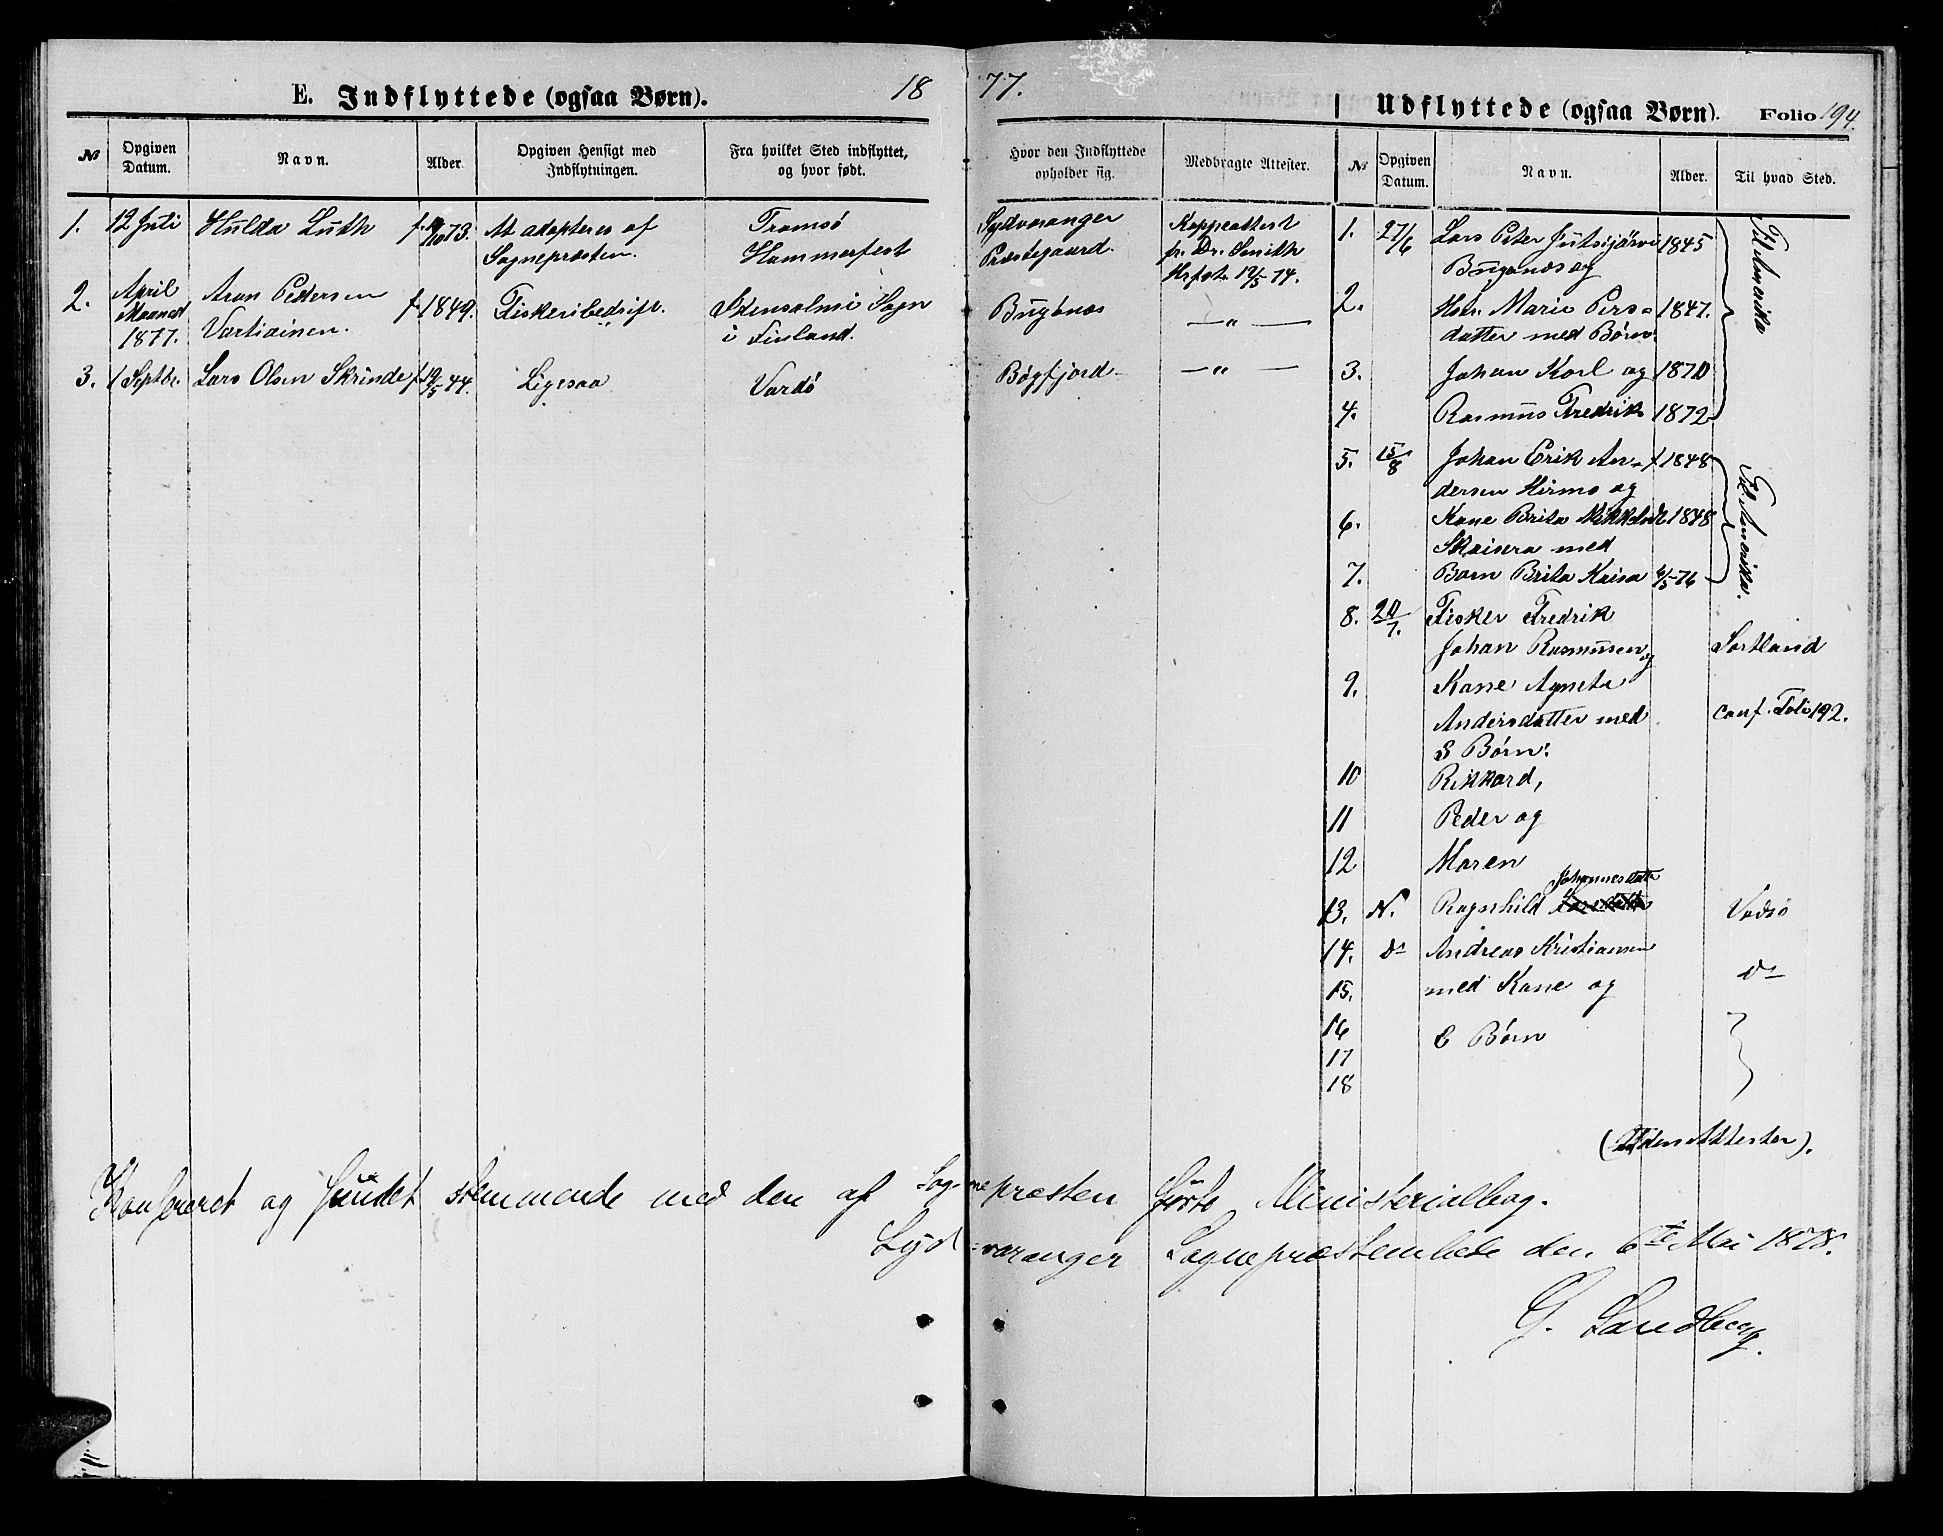 E. Indflyttede (ogsaa Børn).
1877.
Udflyttede (ogsaa Børn).
Folio 194.
№
Opgiven Datum.
Navn.
Alder.
Opgiven Hensigt med Indflytningen.
Fra hvilket Sted indflyttet, og hvor født.
Hvor den Indflyttede opholder sig.
Medbragte Attester.
№
Opgiven Datum.
Navn.
Alder.
Til hvad Sted.
1. 12 Juli Hulda Luth 73. At adopteres af Tromsö Sydvaranger Koppeattest
Sognepræsten. Hammerfest Præstegaard. fr. Dr. Smith
Hrfst. 12/5 74.
2. April Aron Pedersen f. 1849. Fiskeribedrift. Idensalmi Sogn Bugönæs — " —
Maaned Vartiainen. i Finland.
1877.
3. 1 Septbr. Lars Olsen Skrinde f. 19/5 44. Ligesaa Vardö Bögfjord — " —
1. 27/6 Lars Peter Jutsijärvi 1845 Til Amerika
Bugönæs og
2. Hstr. Marie Pers= 1847.
datter med Børn:
3. Johan Karl og 1870
4. Rasmus Fredrik 1872
5. 15/8 Johan Erik An- f 1848 Til Amerika.
dersen Hirmo og
6. Kone Brita 1848
med
7. Barn Brita Kaisa 4/5 76
8. 20/7. Fisker Fredrik
Johan Rasmussen og Sortland
9. Kone Agneta
Andersdatter med conf. Folio 192.
3 Børn:
10 Rikkard,
11 Peder og
12 Maren
Johannesdatt
13. N. Ragnhild Vadsö
14. do Andreas Kristiansen do
15. med Kone og
16
Børn
17
18
(Uden Attester).
Konfereret og fundet stemmende med den af Sognepræsten førte Ministerialbog.
Sydvaranger Sognepræstembede den 6te Mai 1878.
G. Sandberg.